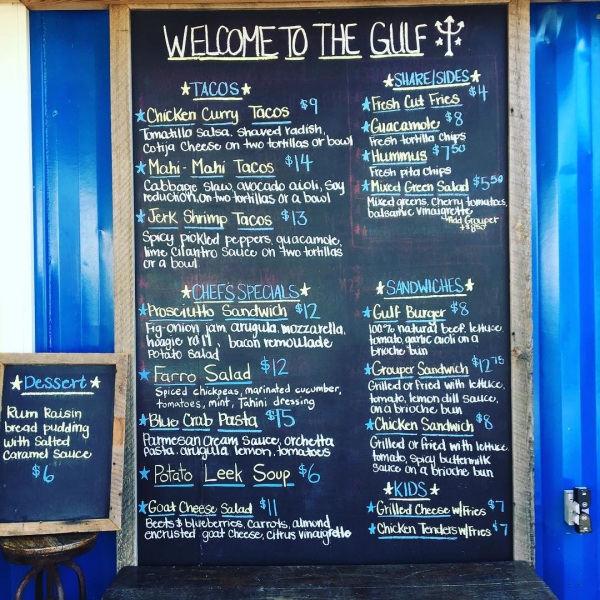 WELCOME TO THE GULF
TACOS
Chicken Curry Tacos $9
Tomatillo salsa, shaved radish,
Cotija Cheese on two tortillas or bowl
Mahi-Mahi Tacos $14
Cabbage slaw, avocado aioli, soy
reduction, on two tortillas or a bowl
Jerk Shrimp Tacos $13
Spicy pickled peppers, guacamole,
lime cilantro sauce on two tortillas
or a bowl
CHEFS SPECIALS
Prosciutto Sandwich $12
Fig-onion jam arugula, mozzarella,
hoagie roll, bacon remoulade
Potato Salad
Farro Salad $12
Spiced chickpeas, marinated cucumber,
tomatoes, mint, Tahini dressing
Blue Crab Pasta $15
Parmesan Cream Sauce, orchetta
pasta, arugula, lemon, tomatoes
Potato Leek Soup $6
Goat Cheese Salad $11
Beets & blueberries, carrots, almond
encrusted goat cheese, citrus vinaigrette
SHARE/SIDES
Fresh Cut Fries $4
Guacamole $8
Fresh tortilla Chips
Hummus $7.50
Fresh pita chips
Mixed Green Salad $5.50
Mixed greens, Cherry tomatoes,
balsamic vinaigrette
Add Grouper
SANDWICHES
Gulf Burger $8
100% natural beef, lettuce,
tomato, garlic aioli on a
brioche bun
Grouper Sandwich $12.75
Grilled or Fried with lettuce,
tomato, lemon dill sauce,
on a brioche bun
Chicken Sandwich $8
Grilled or fried with lettuce
tomato, spicy buttermilk
sauce on a brioche bun
KIDS
Grilled Cheese w/Fries $7
Chicken Tenders w/Fries $7
Dessert
Rum Raisin
bread pudding
with Salted
Caramel sauce
$6